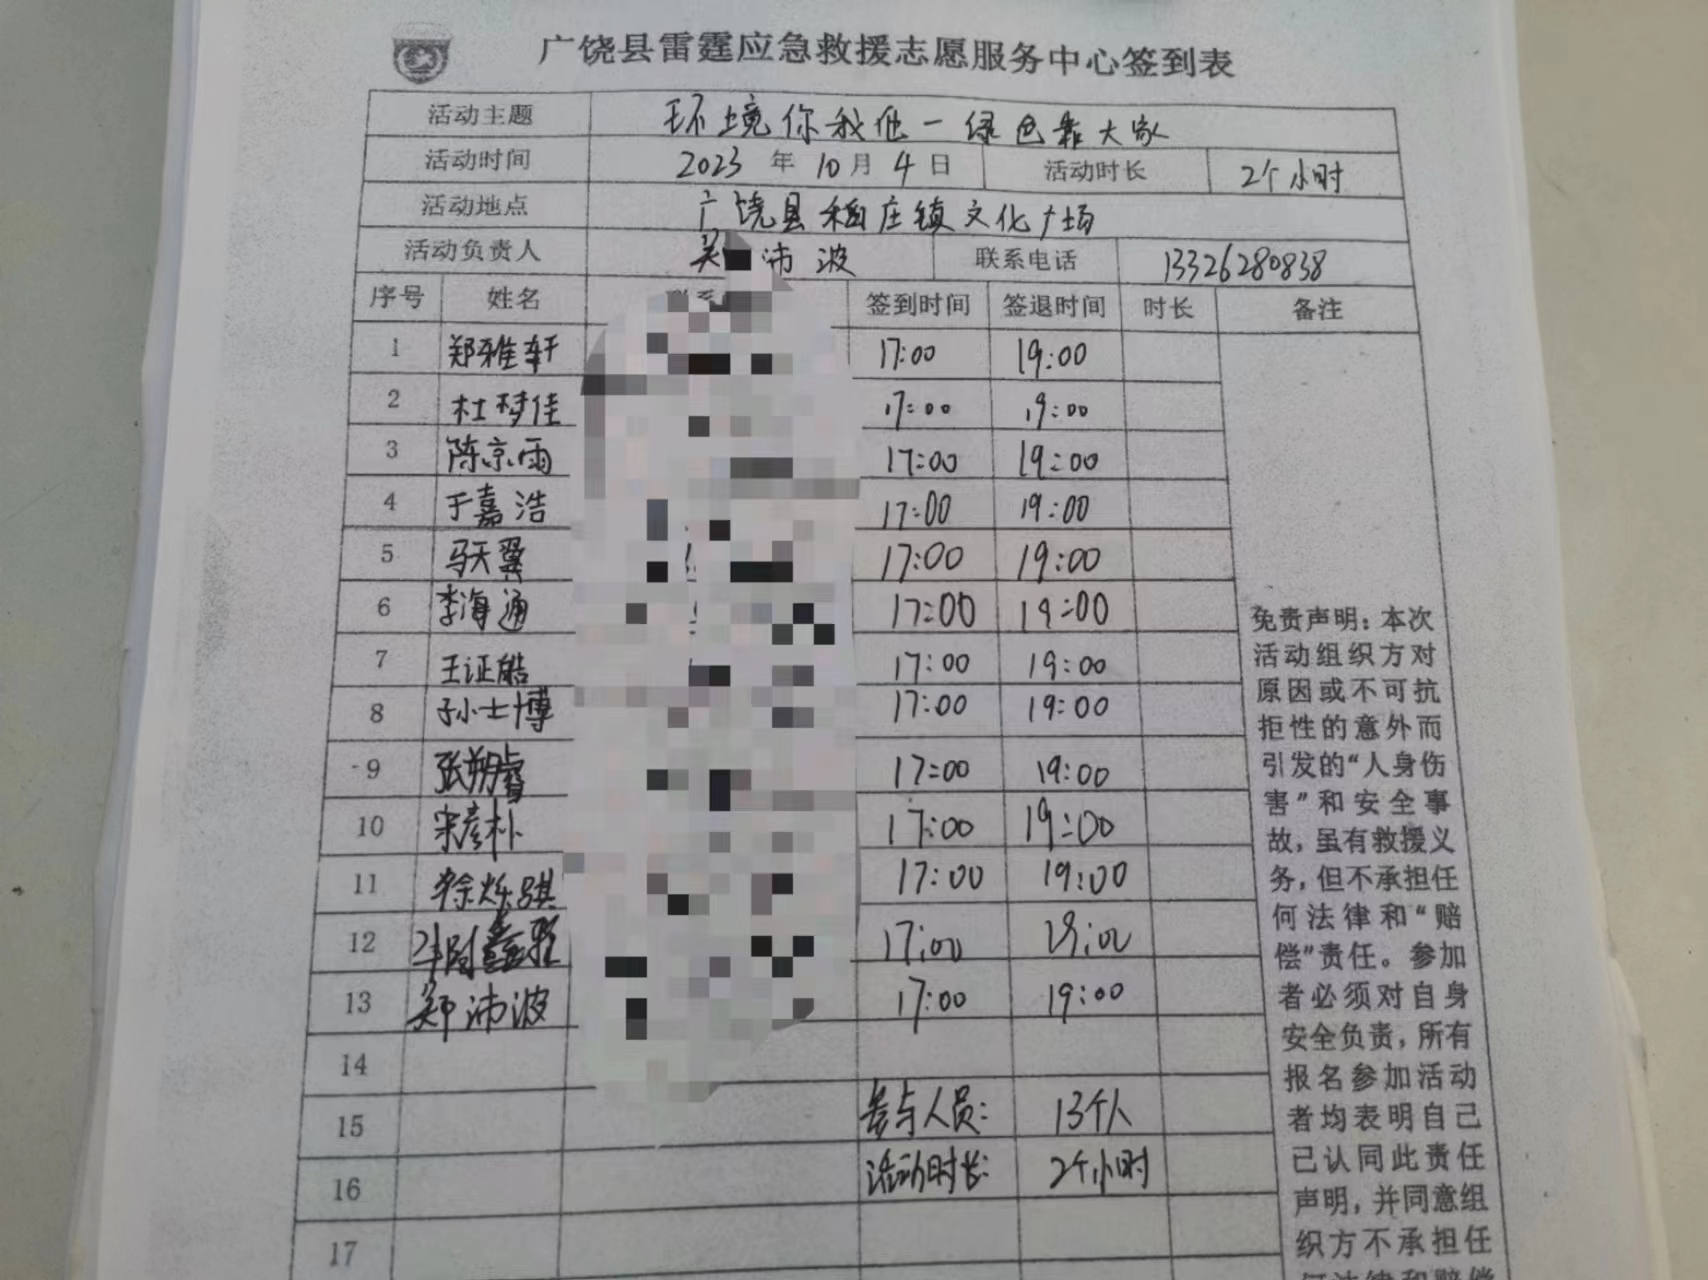 广饶县雷霆应急救援志愿服务中心签到表
活动主题 环境你我他一绿色靠大家
活动时间 2023 年 10 月 4 日 活动时长 2个小时
活动地点 广饶县稻庄镇文化广场
活动负责人 沛波 联系电话 13326280838
序号 姓名 签到时间 签退时间 时长 备注
1 郑雅轩 17:00 19:00
2 杜梦佳 17:00 19:00
3 陈京雨 17:00 19:00
4 于嘉浩 17:00 19:00
5 马天翼 17:00 19:00
6 李海通 17:00 19:00
7 王证皓 17:00 19:00
8 孙士博 17:00 19:00
9 张朔睿 17:00 19:00
10 宋彦朴 17:00 19:00
11 徐烁骐 17:00 19:00
12 17:00 19:00
13 郑沛波 17:00 19:00
14
15 参与人员: 13个人
16 活动时长: 2个小时
17
免责声明:本次
活动组织方对
原因或不可抗
拒性的意外而
引发的“人身伤
害”和安全事
故,虽有救援义
务,但不承担任
何法律和“赔
偿”责任。参加
者必须对自身
安全负责,所有
报名参加活动
者均表明自己
已认同此责任
声明,并同意组
织方不承担任
何法律和赔偿